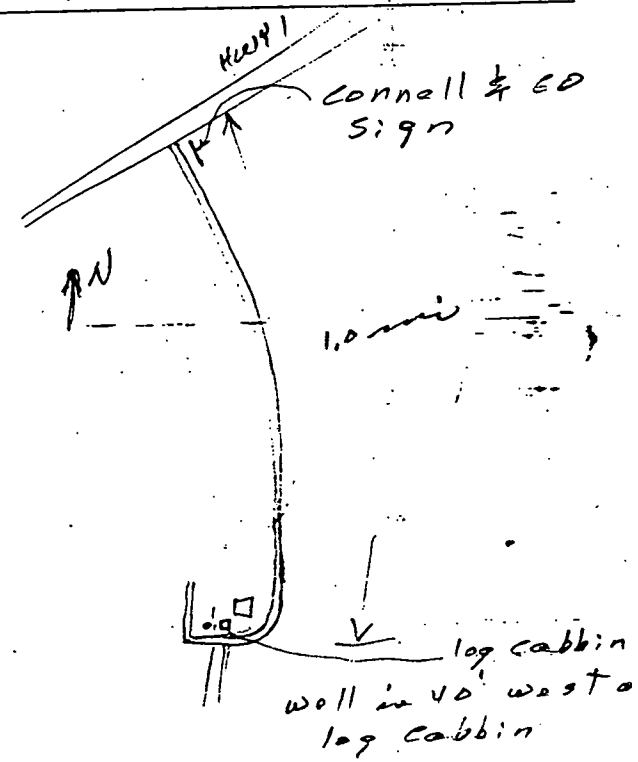 HWY 1
Connell & CO
Sign
N
1.0 mi
log cabbin
well is 40' west o
log cabbin